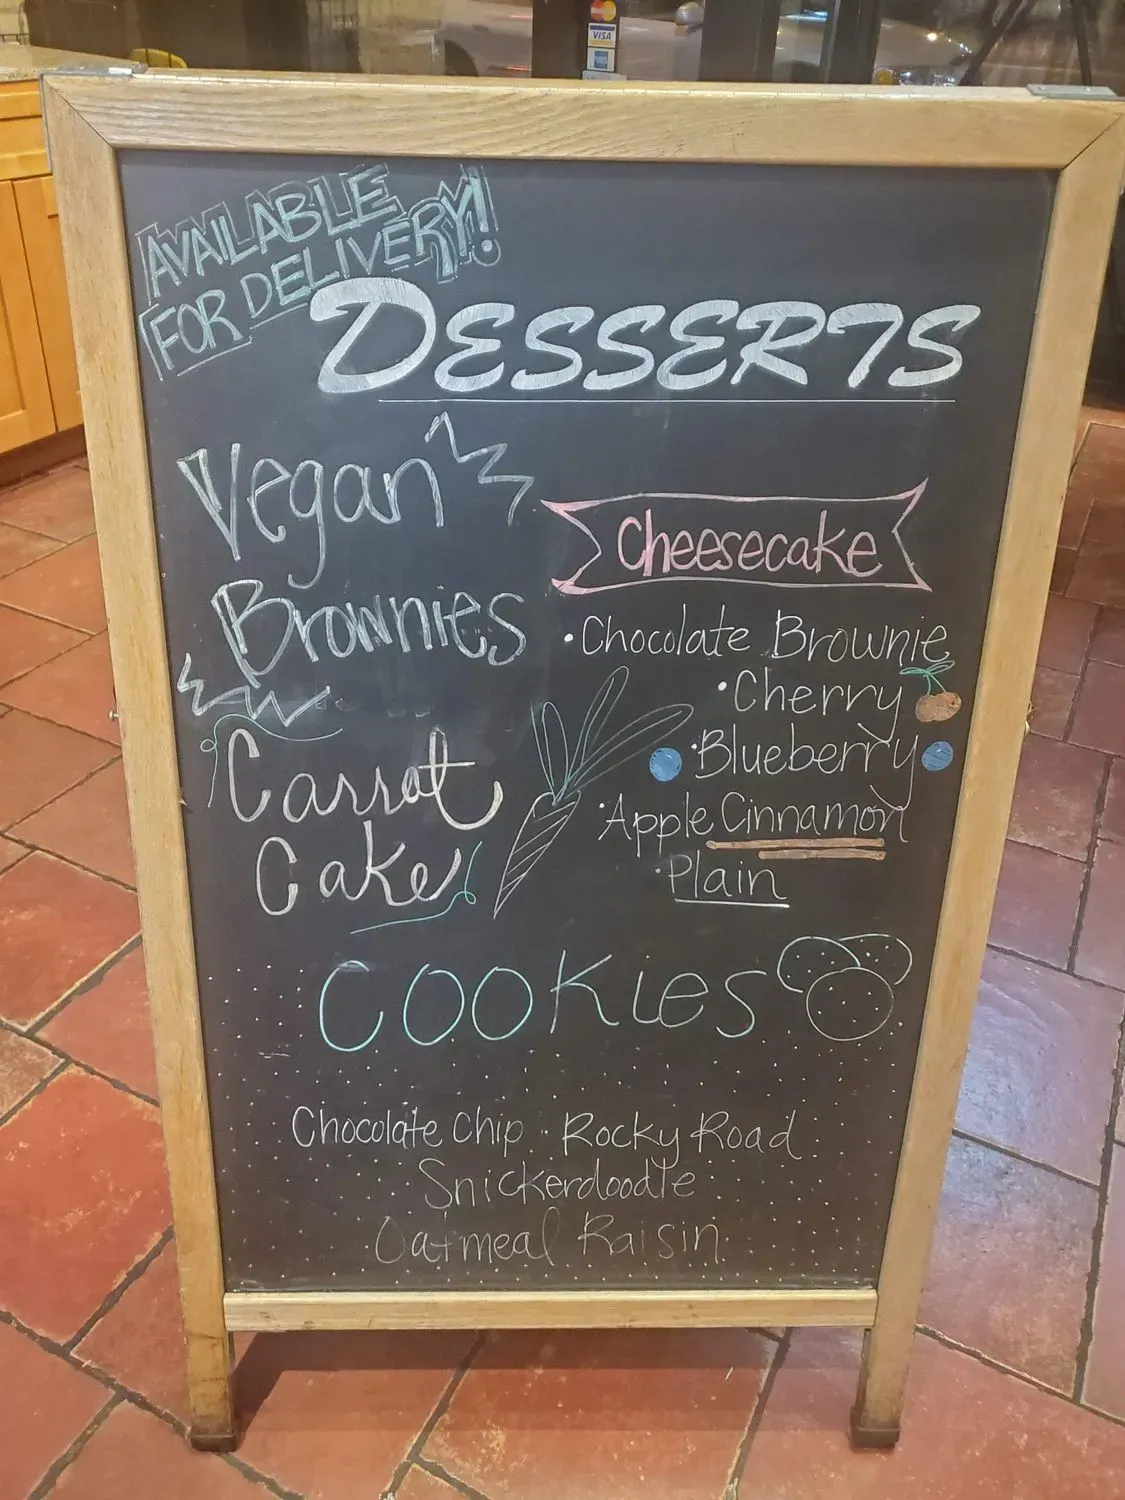 VISA
AVAILABLE
FOR DELIVERY!
DESSERTS
Vegan
Brownies
Carrot
Cake
Cheesecake
• Chocolate Brownie
• Cherry
• Blueberry
• Apple Cinnamon
• Plain
COOKIES
Chocolate Chip
Rocky Road
Snickerdoodle
Oatmeal Raisin